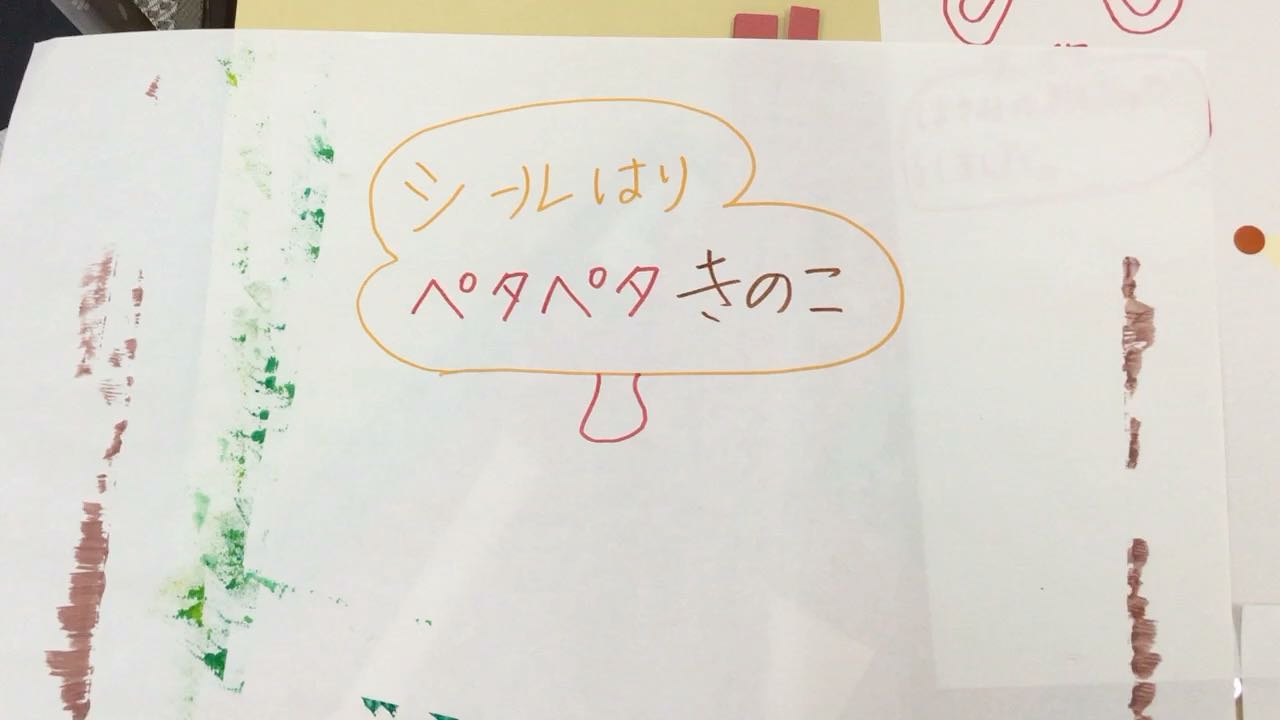 シールはり
ペタペタきのこ